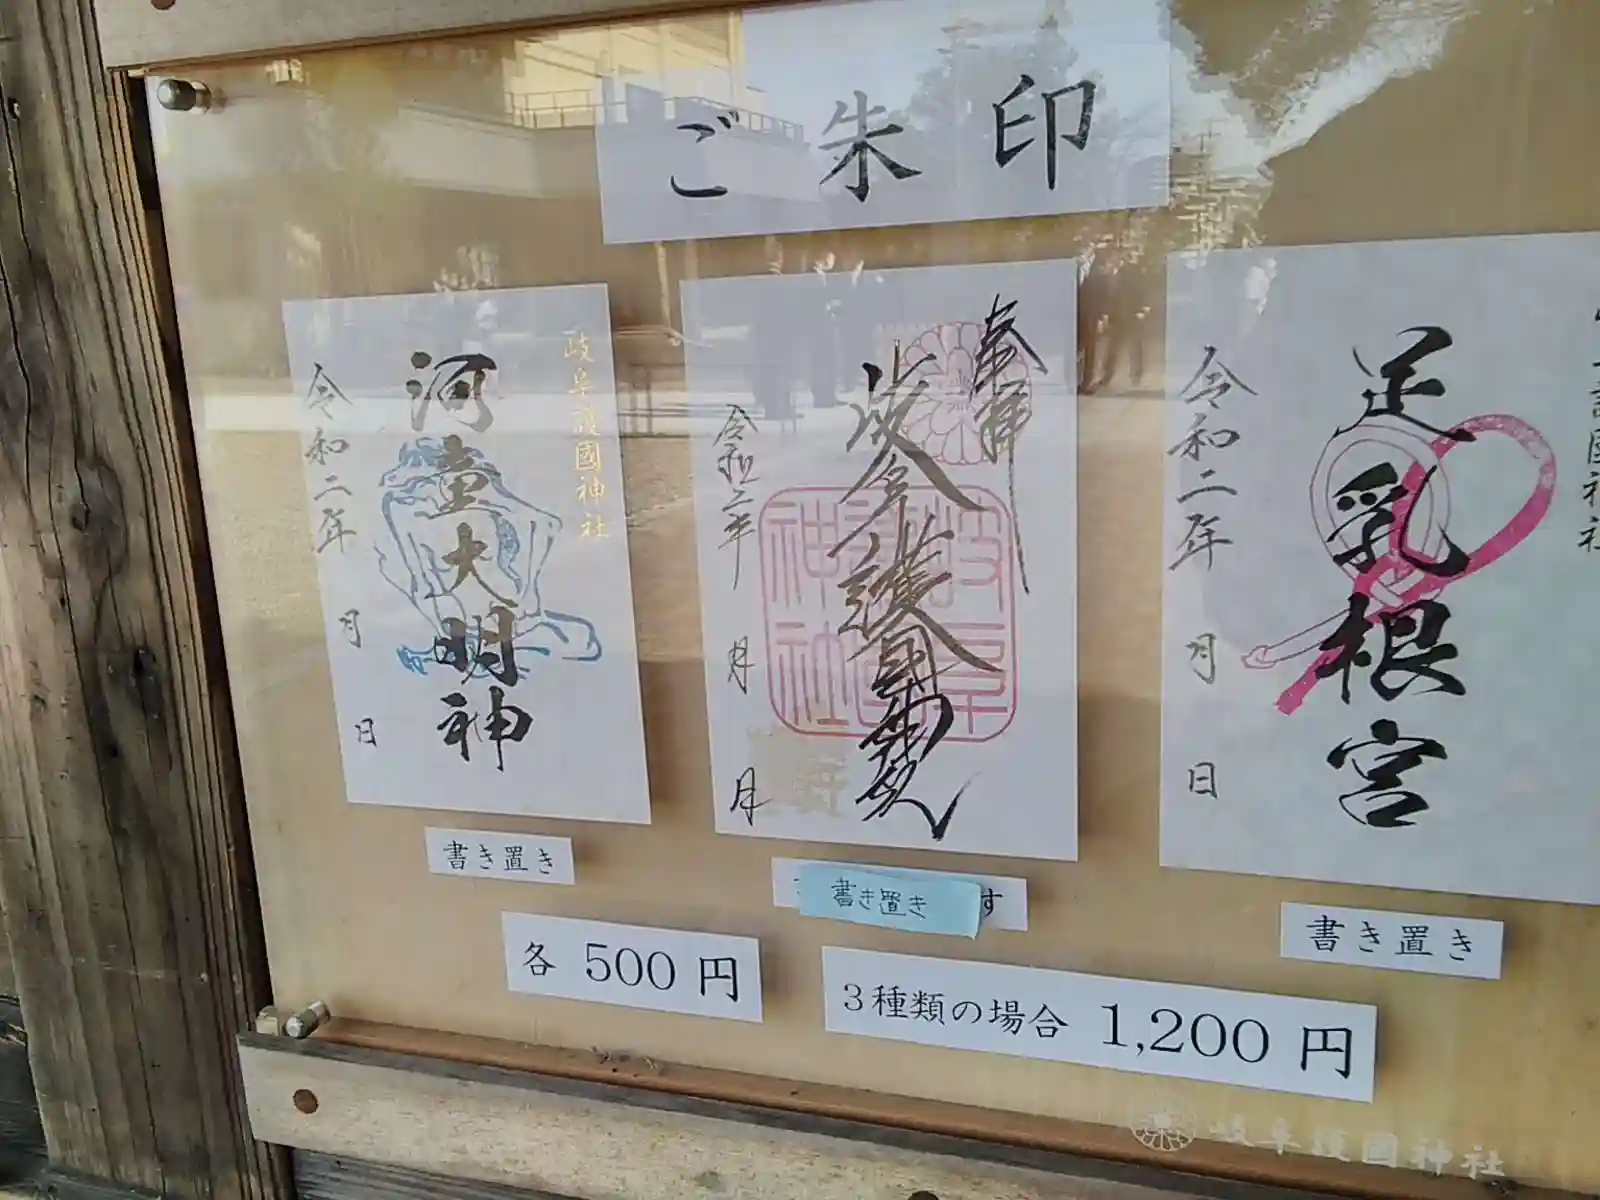 ご朱印
岐阜護國神社
河童大明神
令和二年 月 日
奉拝
岐阜護國神社
令和二年 月 日
護國神社
足乳根宮
令和二年 月 日
書き置き
書き置き
す
書き置き
各 500 円
3種類の場合 1,200 円
岐阜護國神社